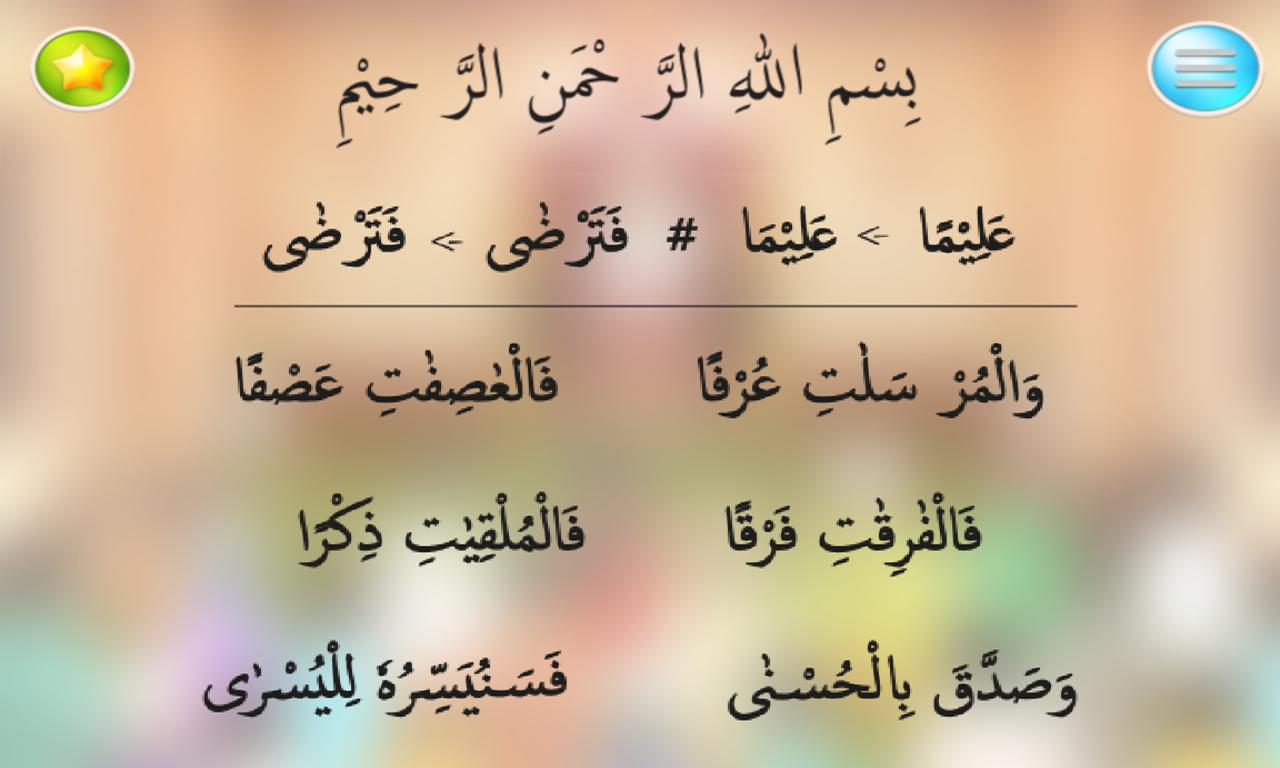 بِسْمِ اللهِ الرَّ حْمَنِ الرَّ حِيْمِ
عَلِيْمًا -> عَلِيْمَا # فَتَرْضٰى -> فَتَرْضٰى
وَالْمُرْ سَلٰتِ عُرْفًا فَالْعٰصِفٰتِ عَصْفًا
فَالْفٰرِقٰتِ فَرْقًا فَالْمُلْقِيٰتِ ذِكْرًا
وَصَدَّقَ بِالْحُسْنٰى فَسَنُيَسِّرُهٗ لِلْيُسْرٰى